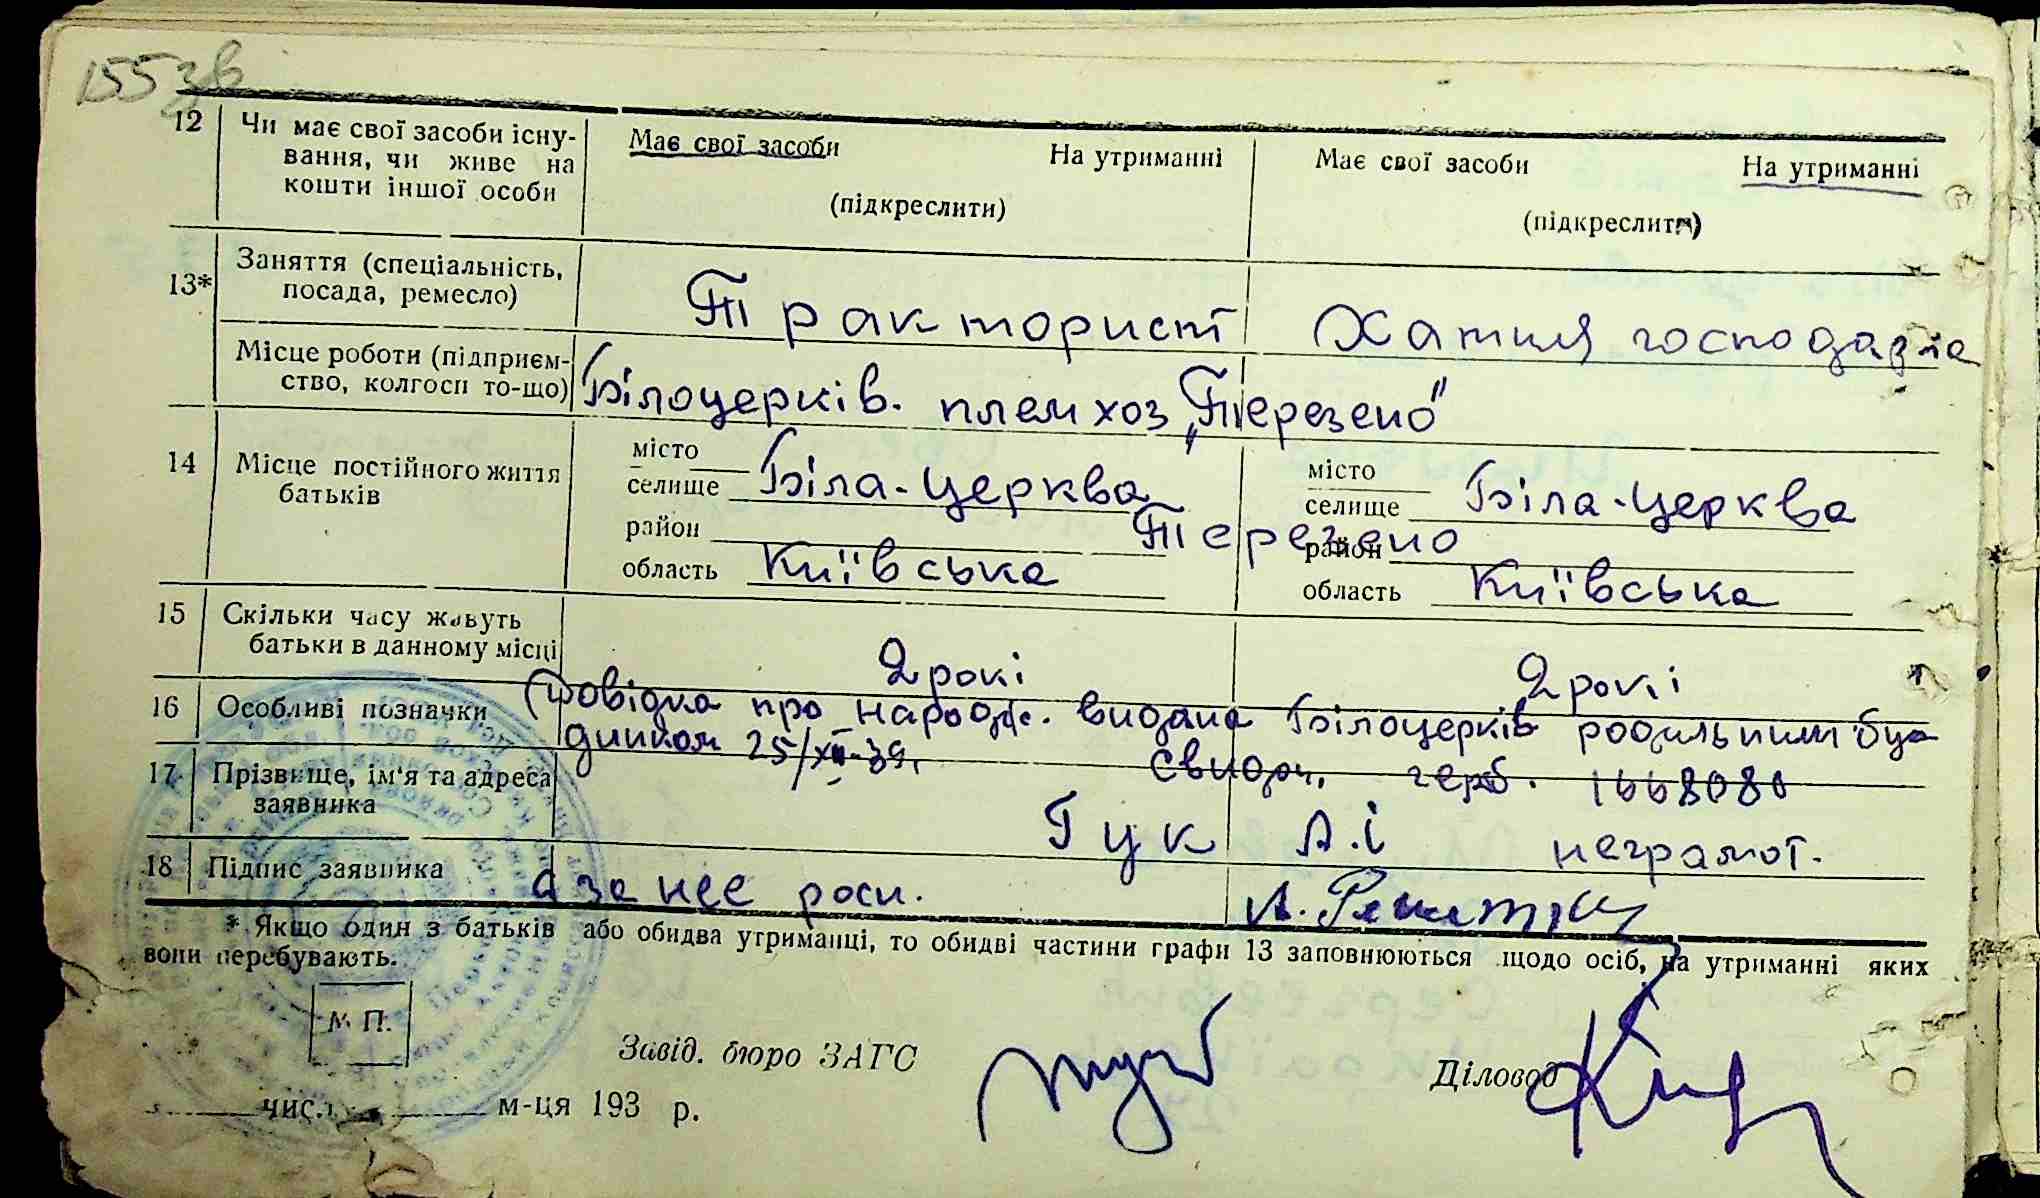 155 зв
12 Чи має свої засоби існу- Має свої засоби На утриманні Має свої засоби На утриманні
вання, чи живе на
кошти іншої особи (підкреслити) (підкреслити)
13* Заняття (спеціальність,
посада, ремесло) Тракторист Хатня господарка
Місце роботи (підприєм-
ство, колгосп то-що) Білоцерків. племхоз „Терезено"
14 Місце постійного життя батьків
місто місто
селище Біла-Церква селище Біла-Церква
район Терезено район
область Київська область Київська
15 Скільки часу живуть
батьки в данному місці 2 рокі 2 рокі
16 Особливі позначки Довідка про народж. видана Білоцерків родильним буд
динком 25/XII-39. Свидоч. герб. 1668080
17 Прізвище, ім'я та адреса
заявника Гук А.І неграмот.
18 Підпис заявника а за неє роспи.
* Якщо один з батьків або обидва утриманці, то обидві частини графи 13 заповнюються щодо осіб, на утриманні яких
вони перебувають.
М. П.
Завід. бюро ЗАГС Діловод
числ м-ця 193 р.